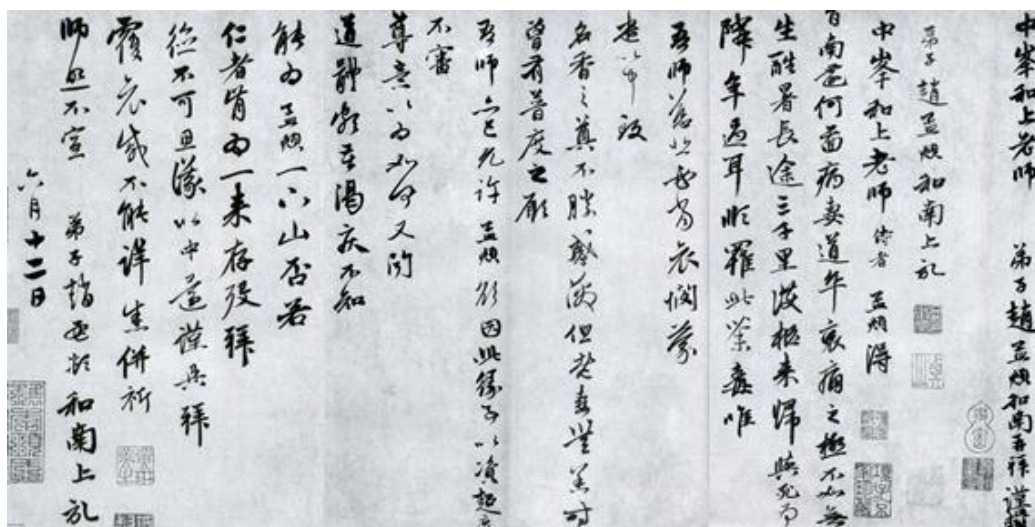 中峯和上老師 弟子趙孟頫和南再拜謹
弟子趙孟頫和南上記
中峯和上老師侍者 孟頫得
旨南還何圖病妻道卒哀痛之極不如無
生酷暑長途三千里護柩來歸與死為
隣年過耳順罹此荼毒唯
吾師慈悲必當哀憫蒙
遣以中致
名香之奠不勝感激但老妻無恙時
曾有普度之願
吾師亦已允許孟頫欲因此緣事以資超度
不審
尊意以為如何又聞
道體頗苦渴疾不知
能為孟頫一下山否若
仁者肯為一來存歿拜
德不可思議以中還謹具拜
覆哀慼不能詳悉併祈
師照不宣 弟子趙孟頫和南上記
六月十二日